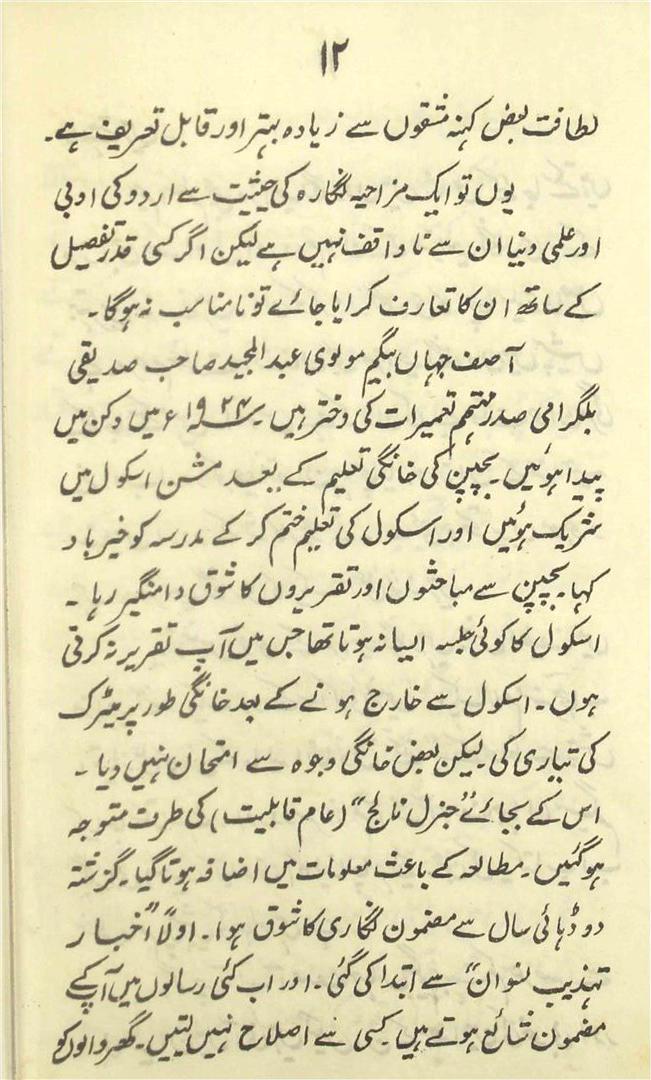 ۱۲
لطافت بعض کہنہ مشقوں سے زیادہ بہتر اور قابل تعریف ہے۔
یوں تو ایک مزاحیہ نگارہ کی حیثیت سے اردو کی ادبی
اور علمی دنیا ان سے ناواقف نہیں ہے لیکن اگر کسی قدر تفصیل
کے ساتھ ان کا تعارف کرایا جائے تو نامناسب نہ ہوگا۔
آصف جہاں بیگم مولوی عبدالمجید صاحب صدیقی
بلگرامی صدر مہتمم تعمیرات کی دختر ہیں۔ ۱۹۲۴ء میں دکن میں
پیدا ہوئیں۔ بچپن کی خانگی تعلیم کے بعد مشن اسکول میں
شریک ہوئیں اور اسکول کی تعلیم ختم کر کے مدرسہ کو خیرباد
کہا۔ بچپن سے مباحثوں اور تقریروں کا شوق دامنگیر رہا۔
اسکول کا کوئی جلسہ ایسا نہ ہوتا تھا جس میں آپ تقریر نہ کرتی
ہوں۔ اسکول سے خارج ہونے کے بعد خانگی طور پر میٹرک
کی تیاری کی۔ لیکن بعض خانگی وجوہ سے امتحان نہیں دیا۔
اس کے بجائے "جنرل نالج" (عام قابلیت) کی طرف متوجہ
ہوگئیں۔ مطالعہ کے باعث معلومات میں اضافہ ہوتا گیا۔ گزشتہ
دو ڈہائی سال سے مضمون نگاری کا شوق ہوا۔ اولاً "اخبار
تہذیب نسواں" سے ابتدا کی گئی۔ اور اب کئی رسالوں میں آپ کے
مضمون شائع ہوتے ہیں۔ کسی سے اصلاح نہیں لیتیں۔ گھر والوں کو